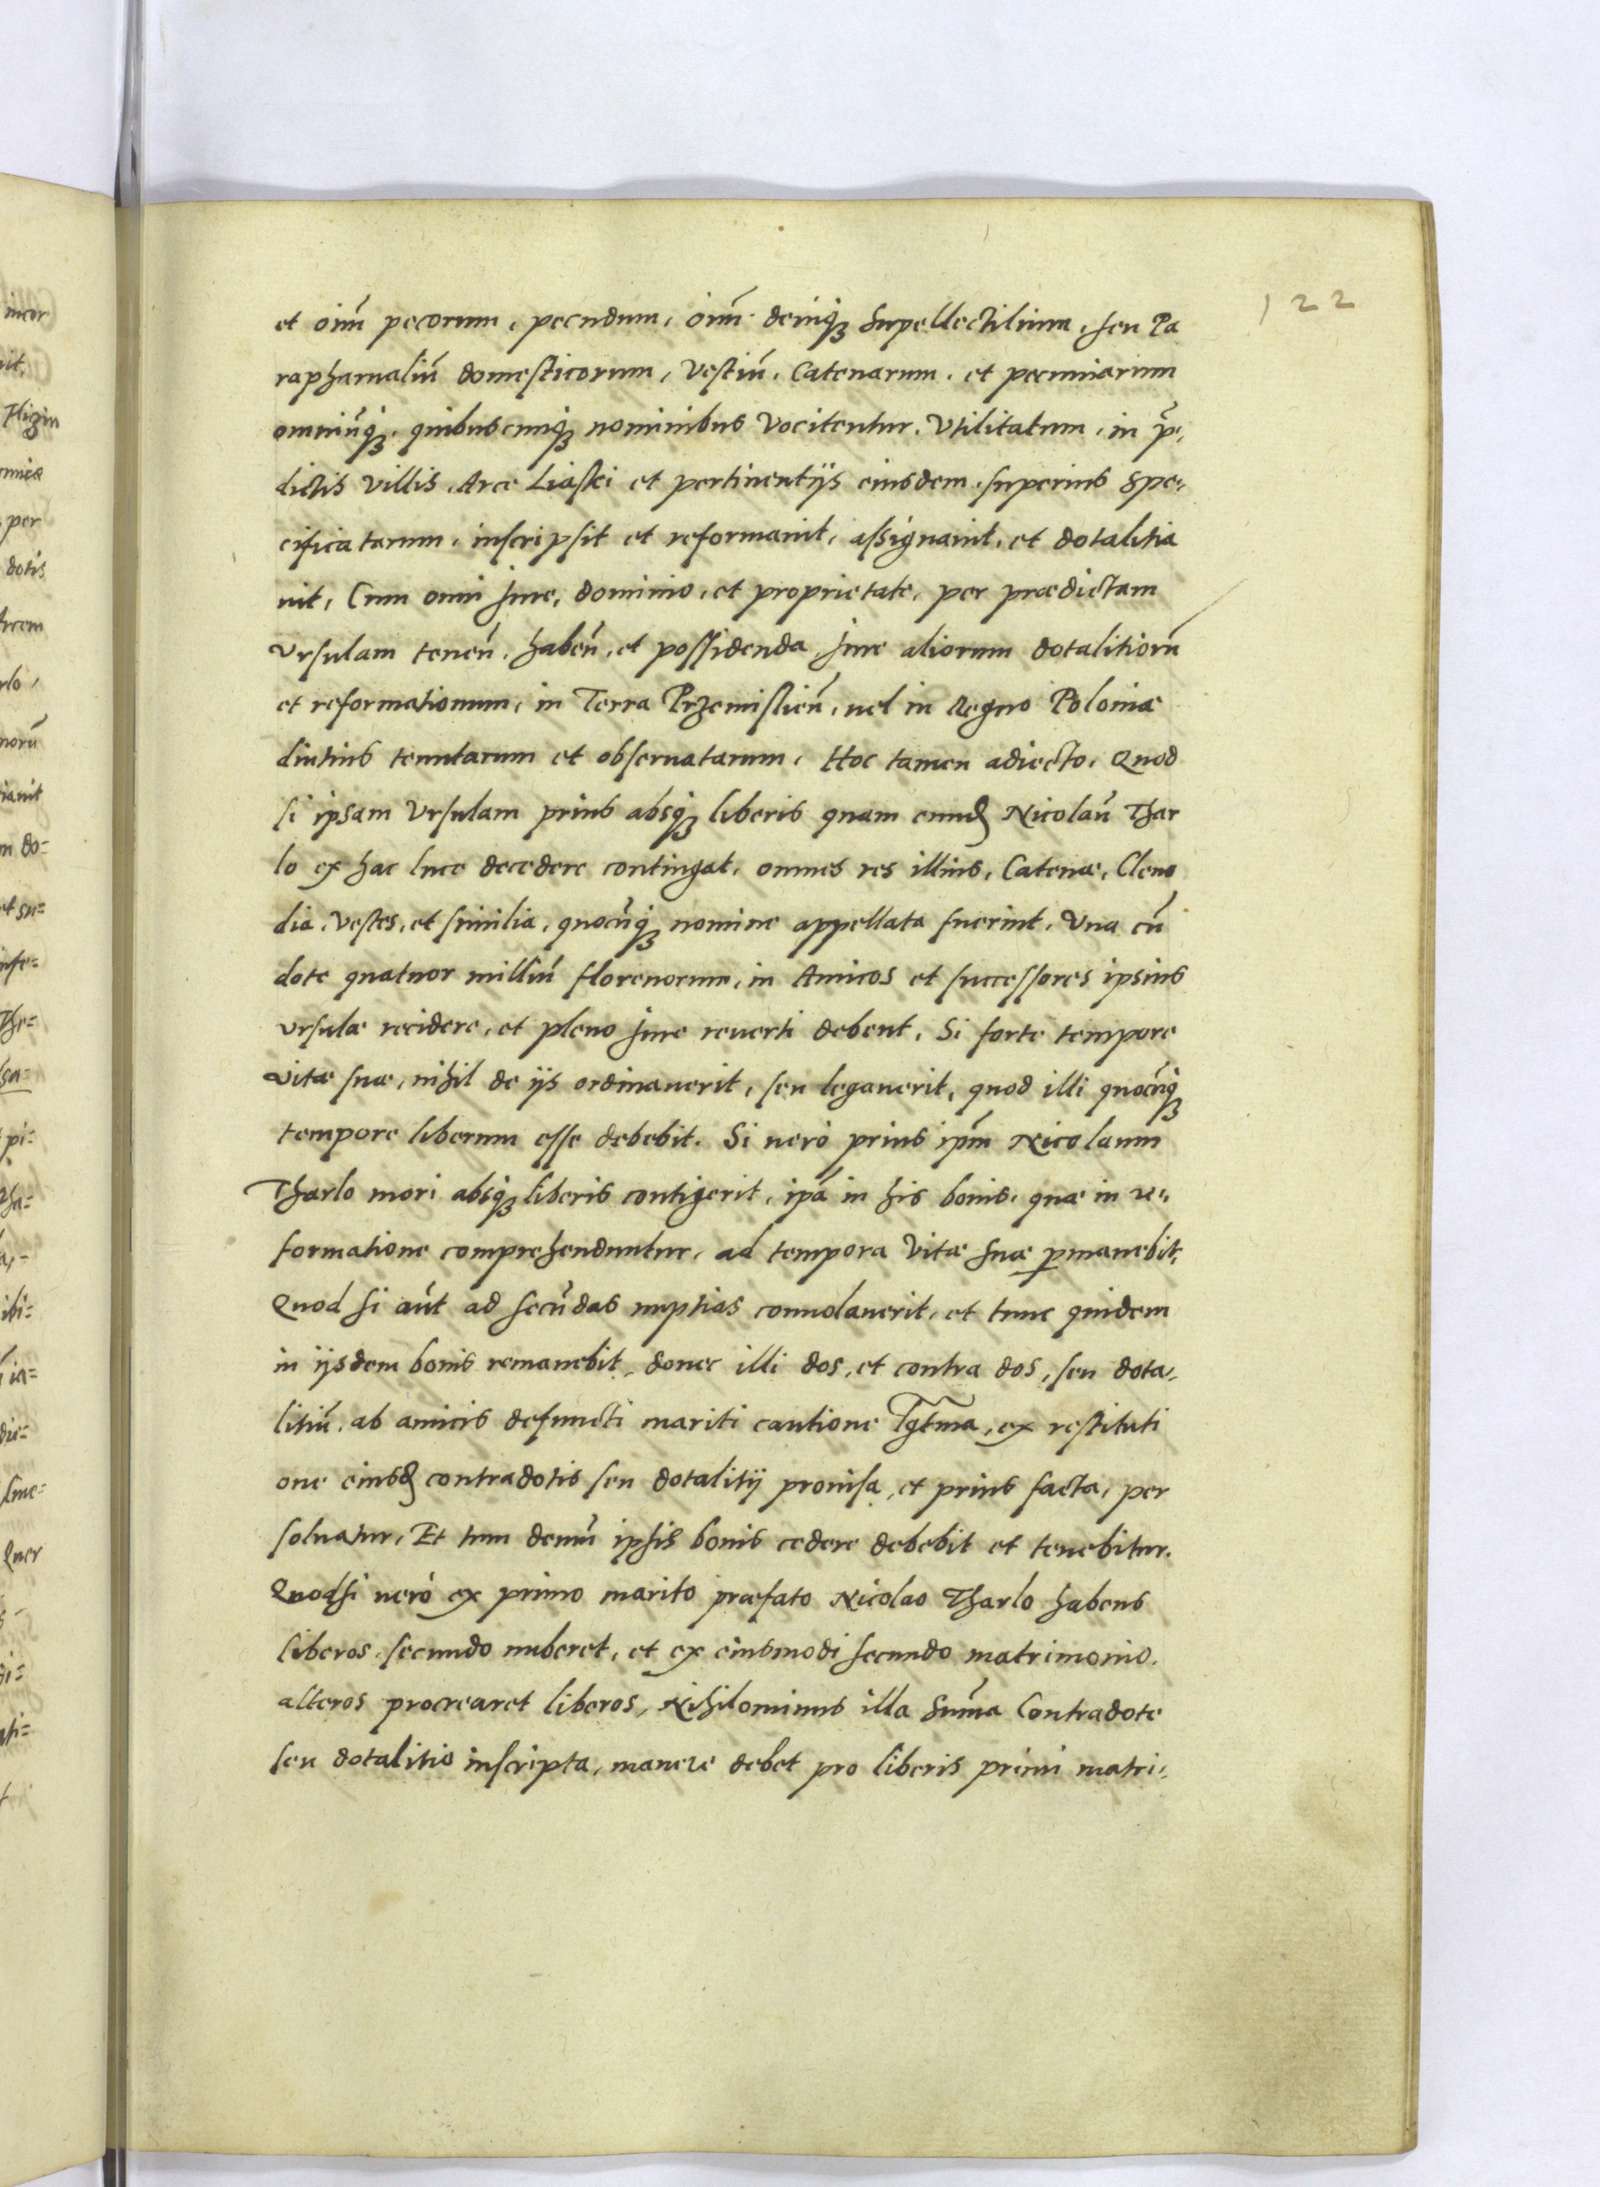 122
et oim̃ pecorum, pecudum, oim̃ deniqꝫ supellectilium, seu Pa
raphamaliũ domesticorum, Vestiũ, Catenarum, et pecuniarum
omniũqꝫ, quibuscunqꝫ nominibus Vocitentur, Vtilitatum, in p̃,
dictis Villis, Arce Liaski et pertinentijs eiusdem, superius Spe,
cificatarum, inscripsit et reformauit, assignauit, et dotalitia
uit, Cum omni Jure, dominio, et proprietate, per prædictam
Vrsulam tenen̄, haben̄, et possidenda, Jure aliorum dotalitiorũ
et reformationum, in Terra Przemislien̄, uel in Regno Poloniæ
diutius tenutarum et obseruatarum, Hoc tamen adiecto, Quod
si ipsam Vrsulam prius absqꝫ liberis quam eund̃ Nicolaũ Thar
lo ex hac luce decedere contingat, omnes res illius, Catenæ, Cleno
dia, Vestes, et similia, quocũqꝫ nomine appellata fuerint, Vna cũ
dote quatuor milliũ florenorum, in Amicos et successores ipsius
Vrsulæ recidere, et pleno Jure reuerti debent, Si forte tempore
Vitæ suæ, nihil de ijs ordinauerit, seu legauerit, quod illi quocũqꝫ
tempore liberum esse debebit. Si uerò prius ip̃m Nicolaum
Tharlo mori absqꝫ liberis contigerit, ip̃a in his bonis, quæ in re,
formatione comprehenduntur, ad tempora Vitæ suæ ꝑmanebit,
Quod si aũt ad secũdas nuptias conuolauerit, et tunc quidem
in ijsdem bonis remanebit, donec illi dos, et contra dos, seu dota,
litiũ, ab amicis defuncti mariti cautione Lgt̃ma, ex restituti
one eiusd̃ contradotis seu dotalitij prouisa, et prius facta, per
soluatur, Et tum demũ ipsis bonis cedere debebit et tenebitur.
Quodsi uerò ex primo marito præfato Nicolao Tharlo habens
liberos, secundo nuberet, et ex eiusmodi secundo matrimonio,
alteros procrearet liberos, Nihilominus illa Sum̃a Contradote
seu dotalitio inscripta, manere debet pro liberis primi matri,